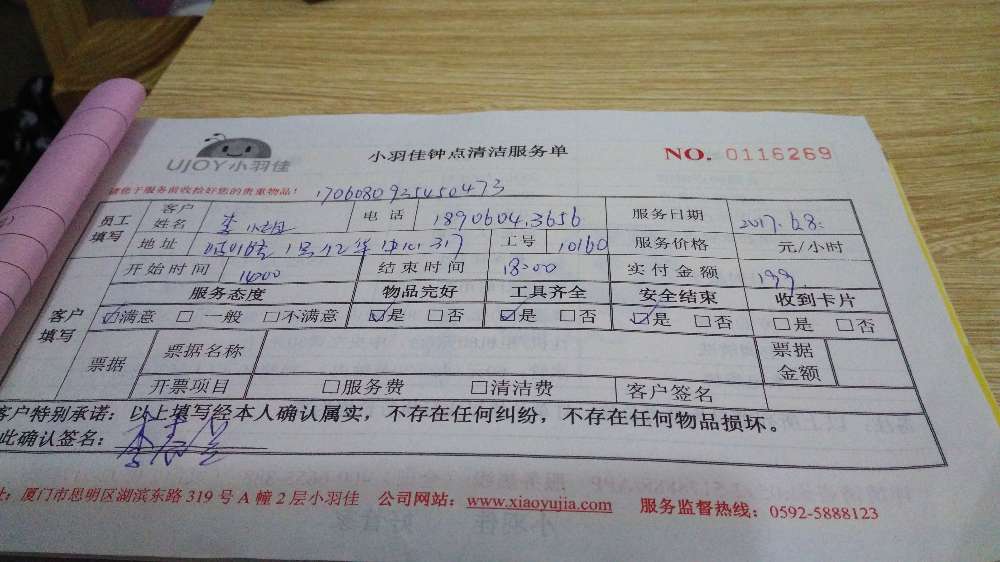 UJOY小羽佳 小羽佳钟点清洁服务单 NO. 0116269
请您于服务前收拾好您的贵重物品! 1706080935450473
员工填写 客户姓名 李小姐 电话 18906043656 服务日期 2017.6.8.
地址 1号 317 工号 10160 服务价格 元/小时
开始时间 14:00 结束时间 18:00 实付金额 199.
服务态度 物品完好 工具齐全 安全结束 收到卡片
客户填写 ☑满意 □一般 □不满意 ☑是 □否 ☑是 □否 ☑是 □否 □是 □否
票据 票据名称 票据金额
开票项目 □服务费 □清洁费 客户签名
客户特别承诺:以上填写经本人确认属实,不存在任何纠纷,不存在任何物品损坏。
此确认签名:
址:厦门市思明区湖滨东路319号A幢2层小羽佳 公司网站:www.xiaoyujia.com 服务监督热线:0592-5888123